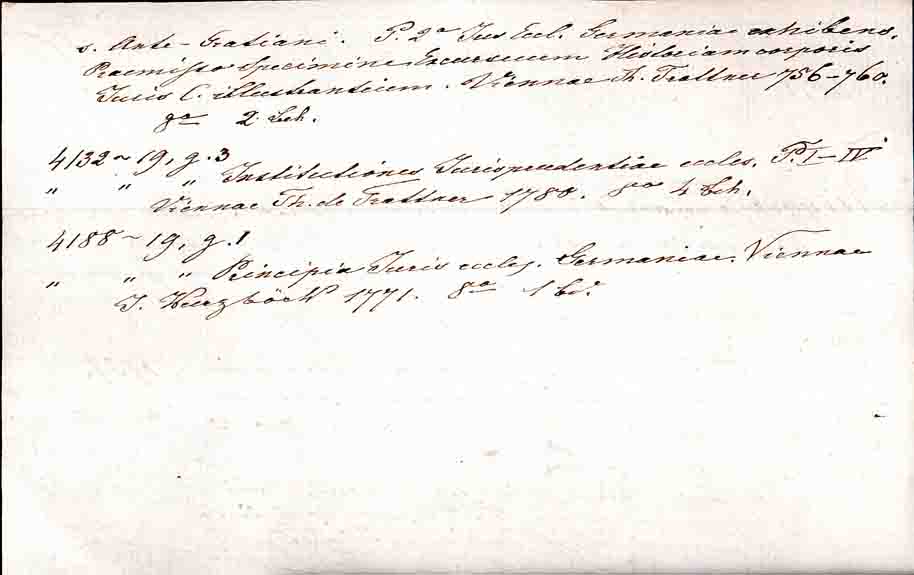 s. Ante-Gratiani. P. 2a Jus Eccl. Germania exhibens.
Praemisso Specimine Excursuum Historiam corporis
Juris C. illustrantium. Viennae Th. Trattner 756-760.
8o 2 Bch.
4132 ~ 19, g. 3
" " " Institutiones Jurisprudentiae eccles. P. I-IV
Viennae Th. de Trattner 1788. 8o 4 Bch.
4188 ~ 19, g. 1
" " " Principia Juris eccles. Germaniae. Viennae
J. Kurzböck 1771. 8o 1 Bd.